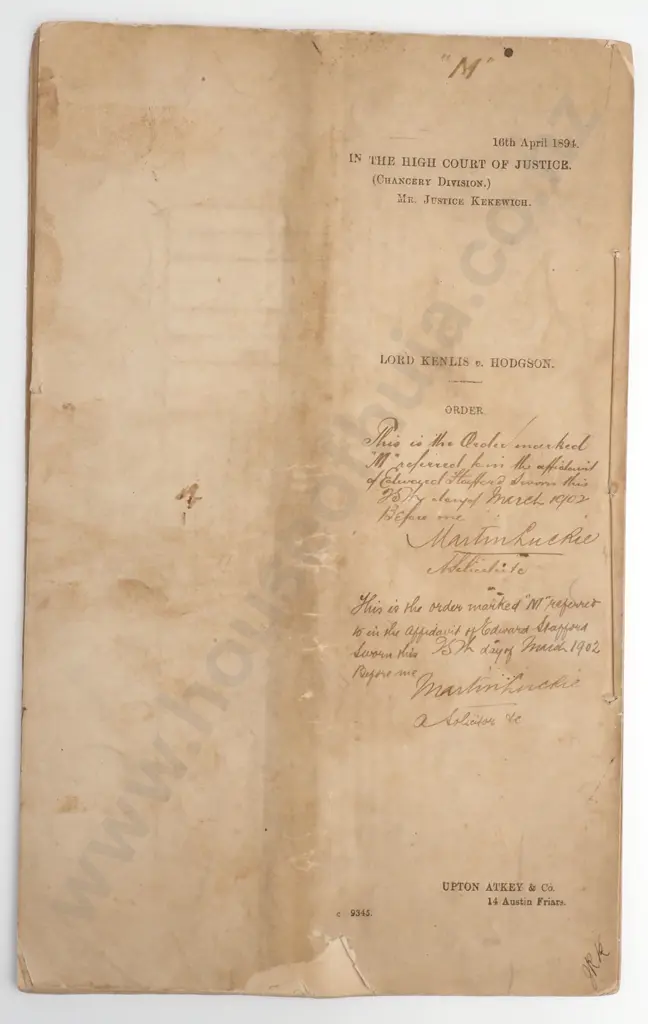 "M"
16th April 1894.
IN THE HIGH COURT OF JUSTICE.
(CHANCERY DIVISION.)
MR. JUSTICE KEKEWICH.
LORD KENLIS v. HODGSON.
ORDER
This is the Order marked
"M" referred to in the affidavit
of Edward Stafford sworn this
25th day of March 1902
Before me
Martin Luckie
A Solicitor &c
This is the order marked "M" referred
to in the Affidavit of Edward Stafford
sworn this 25th day of March 1902
Before me
Martin Luckie
a Solicitor &c
UPTON ATKEY & Co.
14 Austin Friars.
c 9345.
www.houseofhuia.co.nz